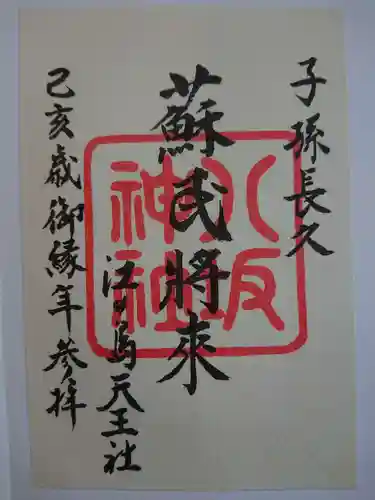 子孫長久
蘇民将來
江ノ島天王社
己亥歳御縁年参拝
八坂神社